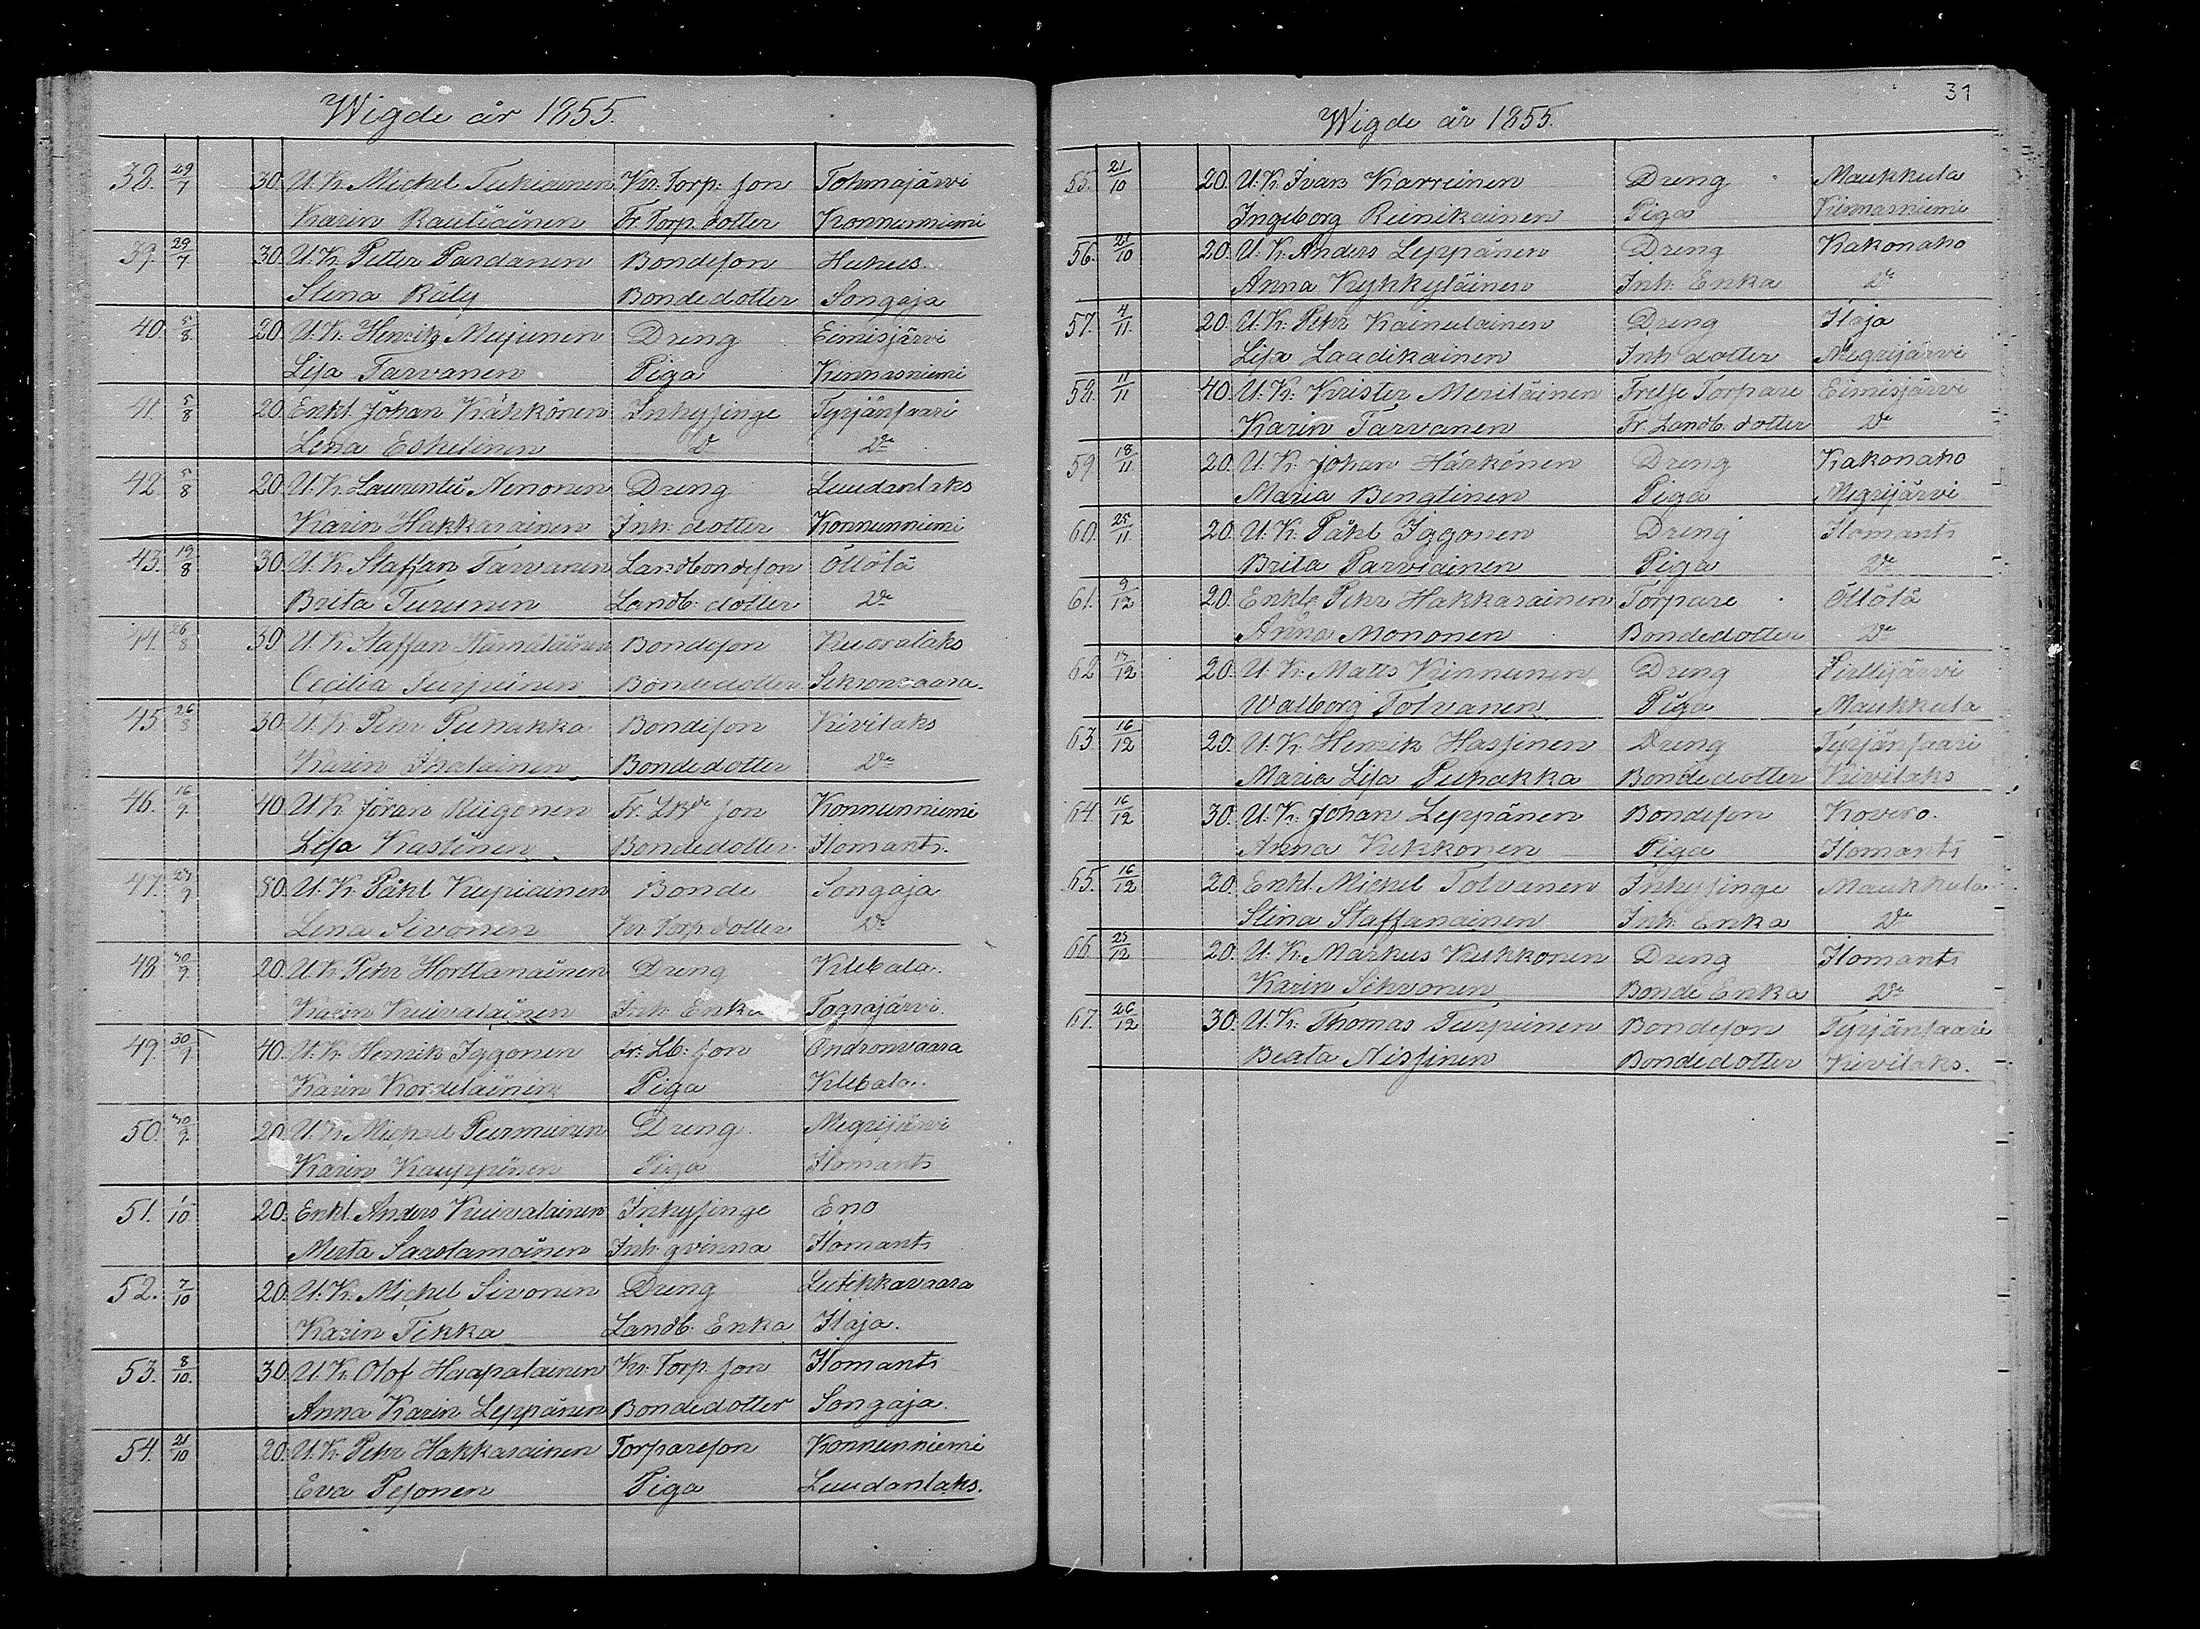 Wigde år 1855.
38. 29/7 30. U.K. Michel Tukiainen Kr. Torp. son Tohmajärvi
Karin Rautiainen Fr. Torp. dotter Konnunniemi
39. 29/7 30. U.K. Petter Pardanen Bondeson Huhus.
Stina Räty Bondedotter Songaja
40. 5/8 20. U.K. Henrik Mujunen Dreng Eimisjärvi
Lisa Tarvanen Piga Kinnasniemi
41. 5/8 20. Enkl. Johan Kähkönen Inhysinge Tyrjänsaari
Lena Eskelinen D:o D:o
42 5/8 20. U.K. Laurentii Nenonen Dreng Luudanlaks
Karin Hakkarainen Inh. dotter Konnunniemi
43. 19/8 30. U.K. Staffan Tarvanen Landbondeson Öllölä
Brita Turunen Landb. dotter D:o
44. 26/8 30 U.K. Staffan Hämäläinen Bondeson Kuoralaks
Cecilia Turpeinen Bondedotter Sikronvaara.
45. 26/8 30. U.K. Pehr Puhakka Bondeson Kivilaks
Karin Bondedotter D:o
46. 16/9. 40. U.K. Jöran Riigonen Fr. LB:de son Konnunniemi
Lisa Kastinen Bondedotter. Ilomants.
47. 23/9 50. U.K. Påhl Kupiainen Bonde Songaja
Lena Sivonen Kr. Torp. dotter D:o
48 30/9. 20. U.K. Pehr Horttanainen Dreng Klebala.
Karin Kuivalainen Inh. Enka Tograjärvi.
49. 30/9 40. U.K. Henrik Iggonen Fr. Lb. son Ondronvaara
Karin Kordelainen Piga Klebala.
50. 30/9. 20 U.K. Michael Purmunen Dreng. Megrijärvi
Karin Kauppinen Piga Ilomants
51. 1/10 20. Enkl. Anders Kuivalainen Inhysinge Eno
Merta Saastamoinen Inh. qvinna Ilomants
52. 7/10 20. U.K. Michel Sivonen Dreng Lutikkavaara
Karin Tikka Landb. Enka Ilaja.
53. 8/10. 30. U.K. Olof Haapalainen Kr. Torp. son Ilomants
Anna Karin Leppänen Bondedotter Songaja.
54. 21/10 20. U.K. Pehr Hakkarainen Torpareson Konnunniemi
Eva Pesonen Piga Luudanlaks.
31
Wigde år 1855.
55. 21/10 20. U.K. Ivan Karreinen Dreng Maukkula
Ingeborg Reinikainen Piga Kinnasniemi
56. 21/10 20. U.K. Anders Leppänen Dreng Kakonaho
Anna Kykkyläinen Inh. Enka D:o
57. 4/11 20. U.K. Pehr Kainulainen Dreng Ilaja
Lisa Laadikainen Inh dotter Megrijärvi
58. 11/11 40. U.K. Krister Meriläinen Frelse Torpare Eimisjärvi
Karin Tarvanen Fr. Landb. dotter D:o
59 18/11 20. U.K. Johan Härkönen Dreng Kakonaho
Maria Bengtinen Piga Megrijärvi
60. 25/11 20. U.K. Påhl Iggonen Dreng Ilomants
Brita Parviainen Piga D:o
61. 9/12 20. Enkl. Pehr Hakkarainen Torpare Öllölä
Anna Mononen Bondedotter D:o
62 20. U.K. Matts Kinnunen Dreng
Walborg Tolvanen Piga Maukkula
63. 16/12 20. U.K. Henrik Hassinen Dreng Tyrjänsaari
Maria Lisa Puhakka Bondedotter Kivilaks
64. 16/12 30. U.K. Johan Leppänen Bondeson Kovero.
Anna Kukkonen Piga Ilomants
65. 16/12 20. Enkl. Michel Tolvanen Inhysinge Maukkula
Stina Staffanainen Inh. Enka D:o
66. 23/12 20. U.K. Markus Kukkonen Dreng Ilomants
Karin Sihvonen Bonde Enka D:o
67. 26/12 30. U.K. Thomas Turpeinen Bondeson Tyrjänsaari
Beata Nissinen Bondedotter Kivilaks.